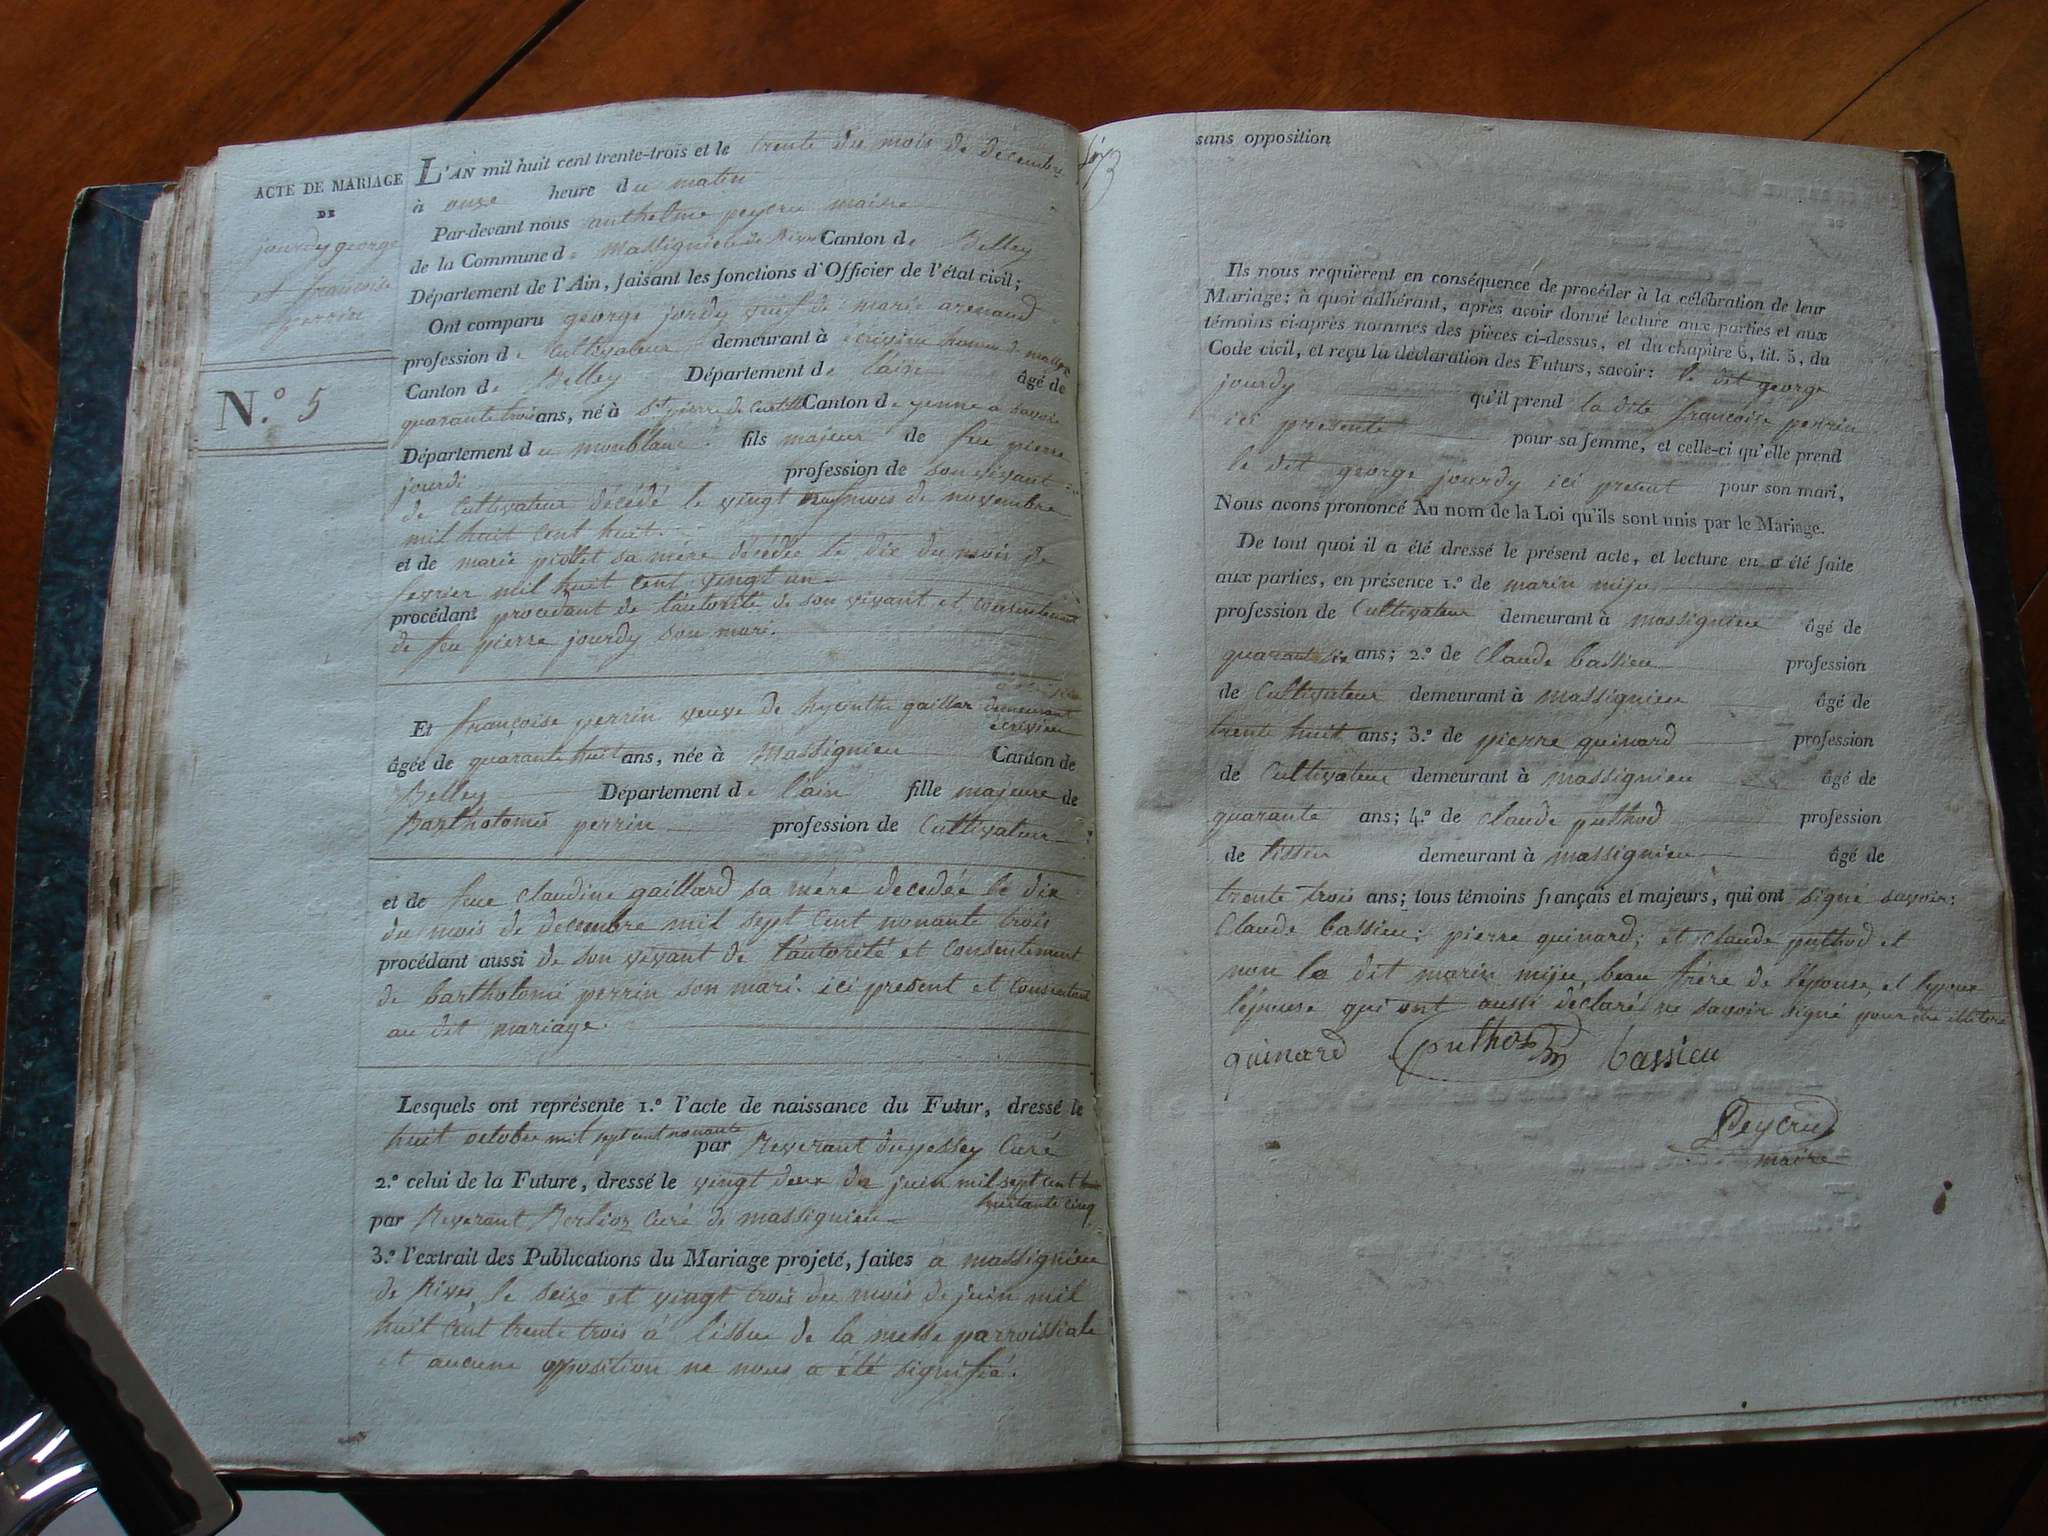 ACTE DE MARIAGE
DE
jourdy george
et francoise
perrin
N.º 5
L'AN mil huit cent trente-trois et le trente du mois de decembre
à onze heure du matin
Par-devant nous anthelme peycru maire
de la Commune de massignieu de Rives Canton de Belley
Département de l'Ain, faisant les fonctions d'Officier de l'état civil;
Ont comparu george jordy veuf de marie arenaud
profession de Cultivateur demeurant à ecrivieu
Canton de Belley Département de lain âgé de
quarante trois ans, né à St pierre de Canton de yenne a savoie
Département du monblanc fils majeur de feu pierre
jourdi profession de son vivant
de Cultivateur décédé le vingt mois de novembre
mil huit cent huit.
et de marie piollet sa mère décédée le dix du mois de
fevrier mil huit cent vingt un
procédant procedant de l'autorité de son vivant et consentement
de feu pierre jourdy son mari.
Et françoise perrin veuve de hyacinthe gaillar demeurant
ecrivieu
âgée de quarante huit ans, née à Massignieu Canton de
Belley Département de l'ain fille majeure de
Bartholomé perrin profession de Cultivateur
et de feue Claudine gaillard sa mére decedée le dix
du mois de decembre mil sept cent nonante trois
procédant aussi de son vivant de l'autorité et Consentement
de bartholomé perrin son mari ici present et Consentent
au dit mariage.
Lesquels ont représenté 1.º l'acte de naissance du Futur, dressé le
huit octobre mil sept cent nonante par Reverant Dupessey Curé
2.º celui de la Future, dressé le vingt deux du juin mil sept cent
huitante cinq
par Reverant Berlioz Curé de massignieu
3.º l'extrait des Publications du Mariage projeté, faites a massignieu
de Rives, le seize et vingt trois du mois de juin mil
huit cent trente trois à l'issue de la messe parroissiale
et aucune opposition ne nous a été signifié.
sans opposition
Ils nous requièrent en conséquence de procéder à la célébration de leur
Mariage; à quoi adhérant, après avoir donné lecture aux parties et aux
témoins ci-après nommés des pièces ci-dessus, et du chapitre 6, tit. 5, du
Code civil, et reçu la déclaration des Futurs, savoir: le dit george
jourdy qu'il prend la dite francoise perrin
ici presente pour sa femme, et celle-ci qu'elle prend
le dit george jourdy ici present pour son mari,
Nous avons prononcé Au nom de la Loi qu'ils sont unis par le Mariage.
De tout quoi il a été dressé le présent acte, et lecture en a été faite
aux parties, en présence 1.º de marin miju
profession de Cultivateur demeurant à massignieu âgé de
quarant six ans; 2.º de Claude bassieu profession
de Cultivateur demeurant à massignieu âgé de
trente huit ans; 3.º de pierre guinard profession
de Cultivateur demeurant à massignieu âgé de
quarante ans; 4.º de Claude puthod profession
de tissieu demeurant à massignieu âgé de
trente trois ans; tous témoins français et majeurs, qui ont signé savoir:
Claude bassieu; pierre guinard; et Claude puthod et
non le dit marin miju, beau frére de l'epouse, et l'epoux
l'epouse qui ont aussi declaré ne savoir signé pour être illitéré
guinard puthod bassieu
Peycru
maire